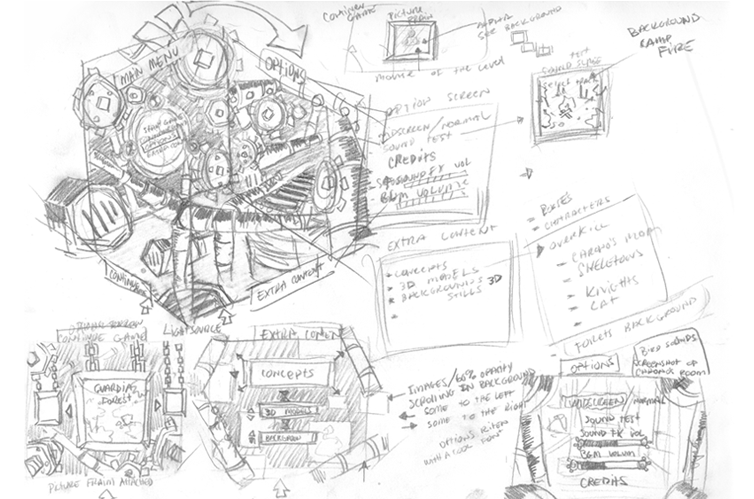 CONTINUE GAME
PICTURE FRAME
BACKGROUND
BACKGROUND
CAMP
FIRE
MAIN MENU
OPTIONS
OF THE LEVEL
TEST
OPTION SCREEN
/NORMAL
SOUND TEST
CREDITS
SOUND FX VOL
BGM VOLUME
EXTRA CONTENT
CONCEPTS
3D MODELS
BACKGROUNDS 3D
STILLS
CHARACTERS
OVERKILL
SKELETONS
KNIGHTS
CAT
CONTINUE
EXTRA CONTENT
LIGHTSOURCE
CONTINUE GAME
GUARDIAN
FOREST
PICTURE FRAME ATTACHED
EXTRA CONTENT
CONCEPTS
3D MODELS
BACKGROUN
IMAGES/60% OPACITY
SCROLLING IN BACKGROUND
SOME TO THE LEFT
SOME TO THE RIGHT
OPTIONS
WITH A COOL FONT
BACKGROUND
OPTIONS
BIRD SOUNDS
SCREENSHOT OF
ROOM
WIDESCREEN/NORMAL
SOUND TEST
SOUND FX VOL
BGM VOLUM
CREDITS